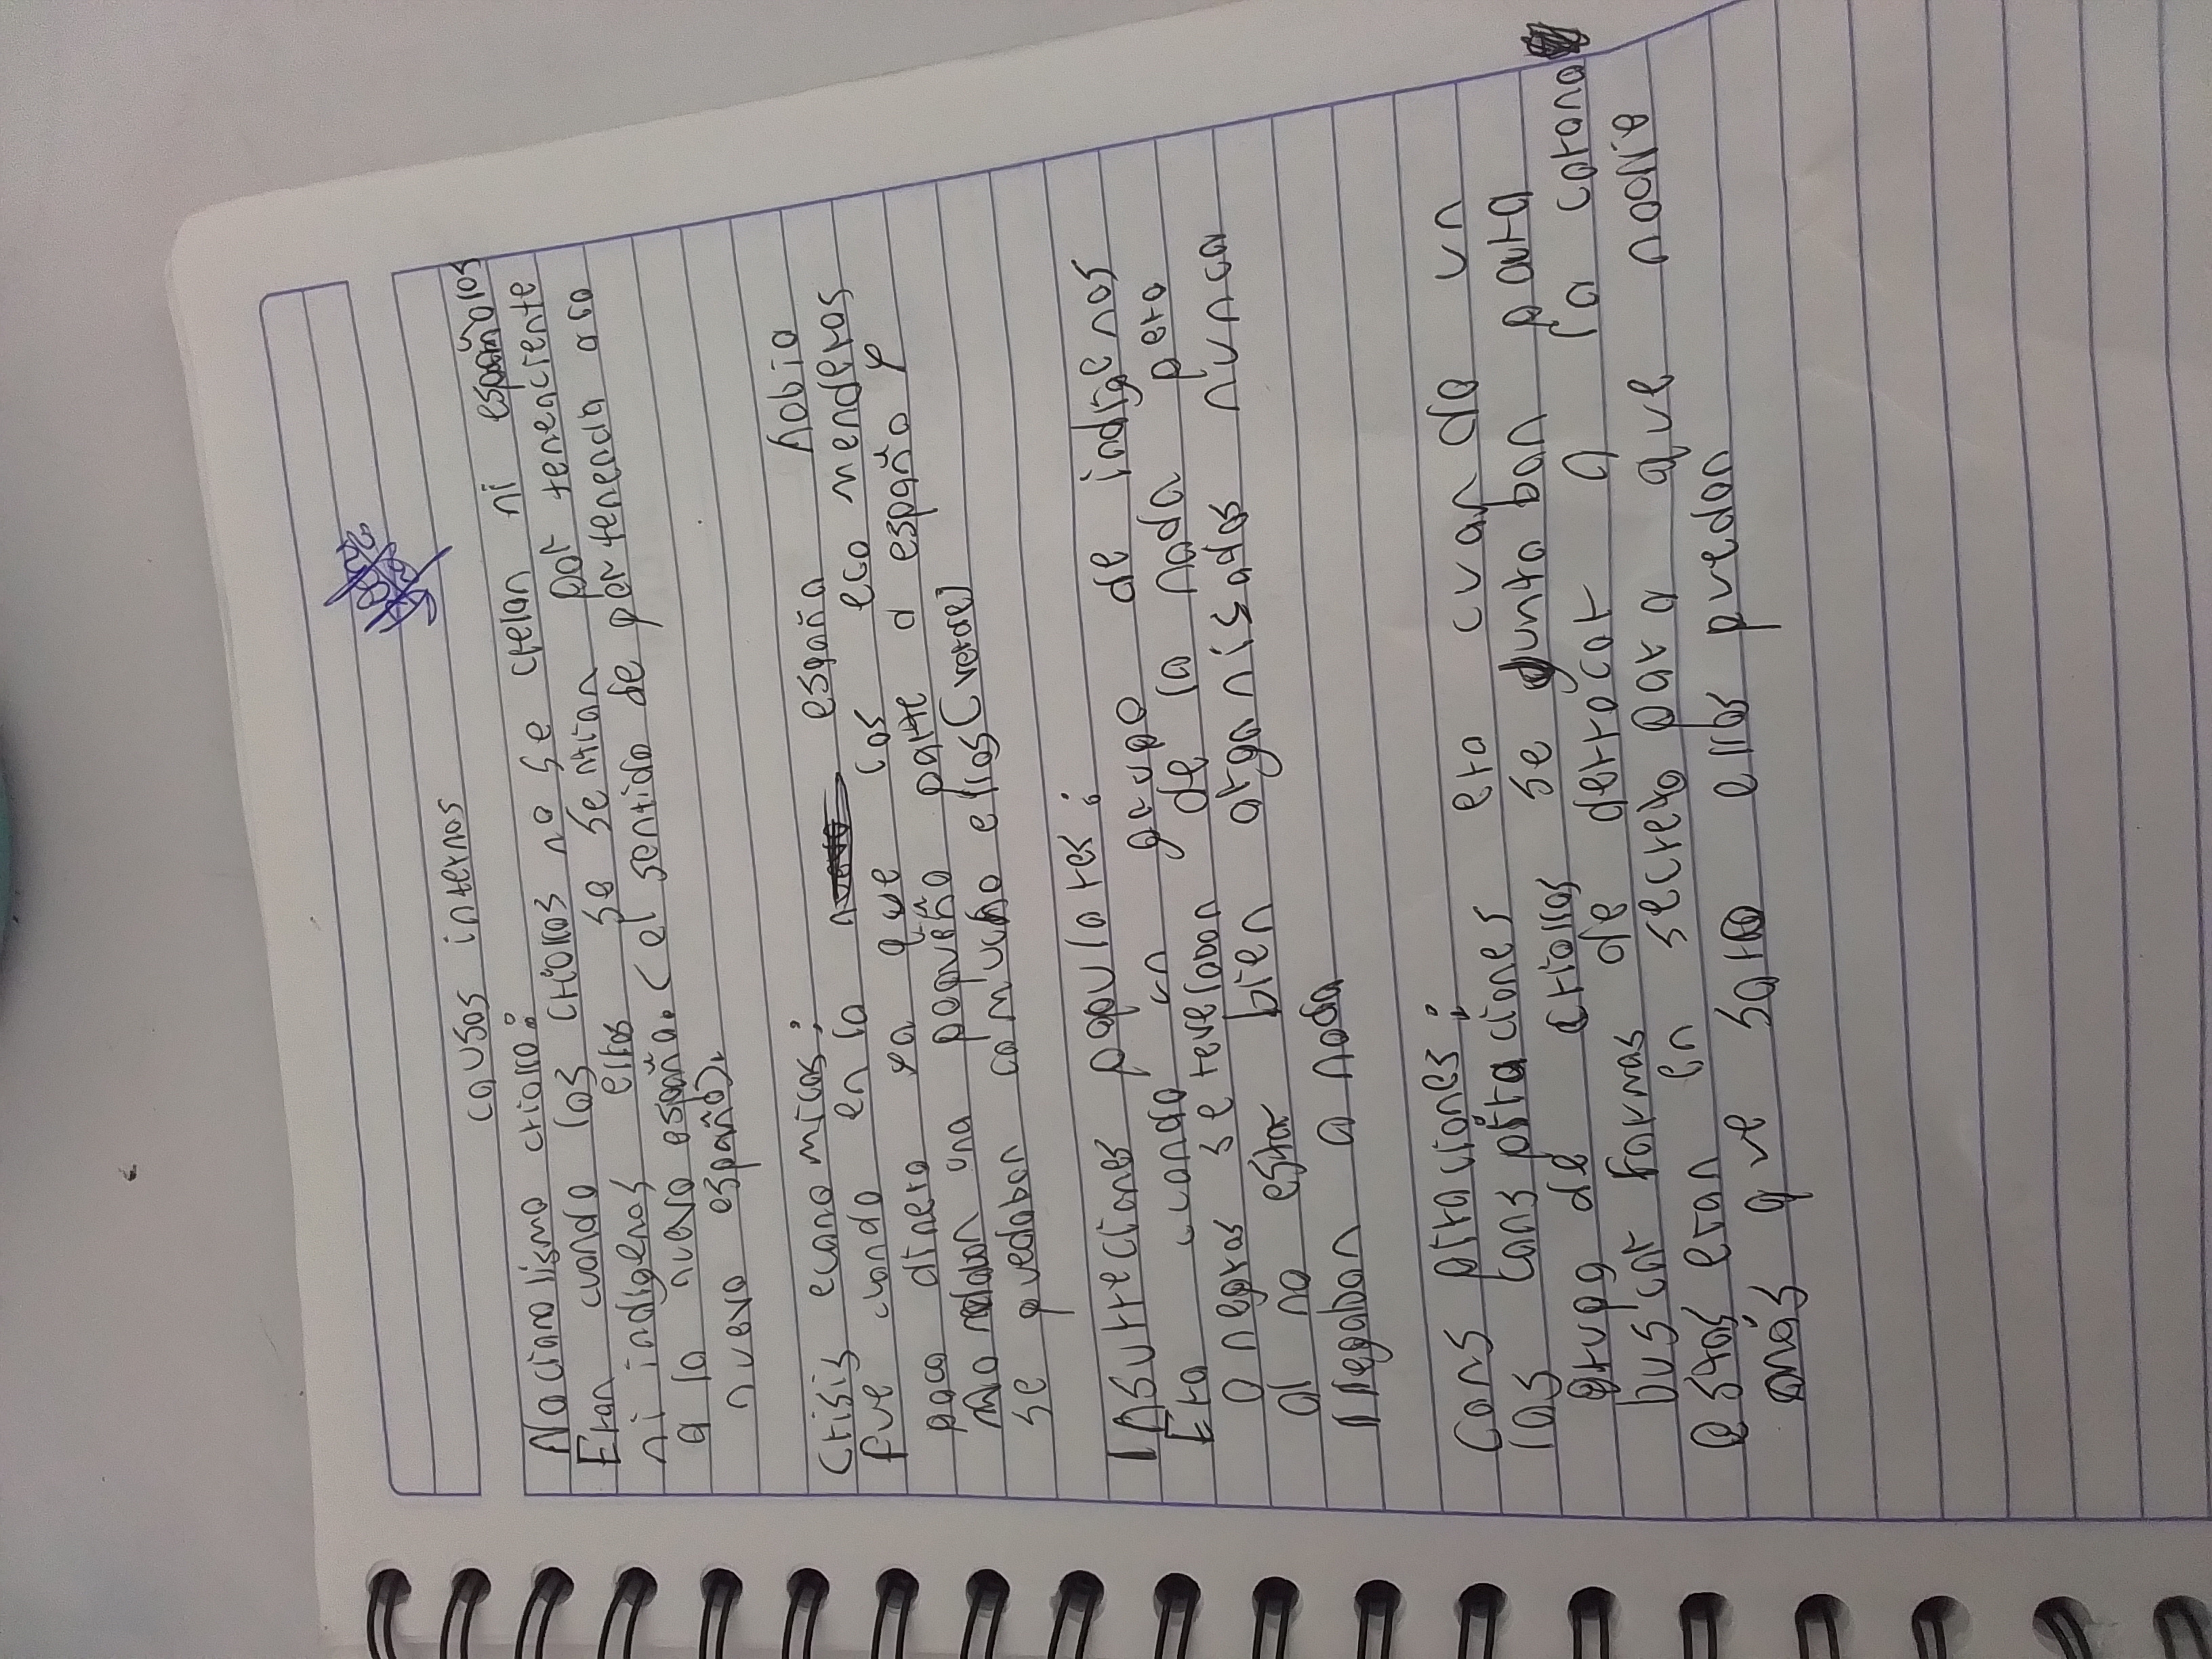 causas internas
Nacionalismo criollo:
Eran cuando los criollos no se creian ni españolos
ni indigenas ellos se sentian por tenenciente
a la nueva españa. (el sentido de pertenencia a so
nuevo español).
Crisis economicas;
fue cuando en la españa habia
poco dinero ya que los eco menderos
mandaban una pequeña parte a españa y
se quedaban com mucho ellos (vetae)
Insurrecciones populares;
Era cuando un grupo de indigenas
o negros se revelaban de la nada pero
al no estar bien organisados nunca
llegaban a nada
Conspiraciones;
las conspiraciones era cuando un
grupo de criollos se juntaban para
buscar formas de derrocar a la corona
estas eran en secreto para que nadie
más que solo ellos puedan